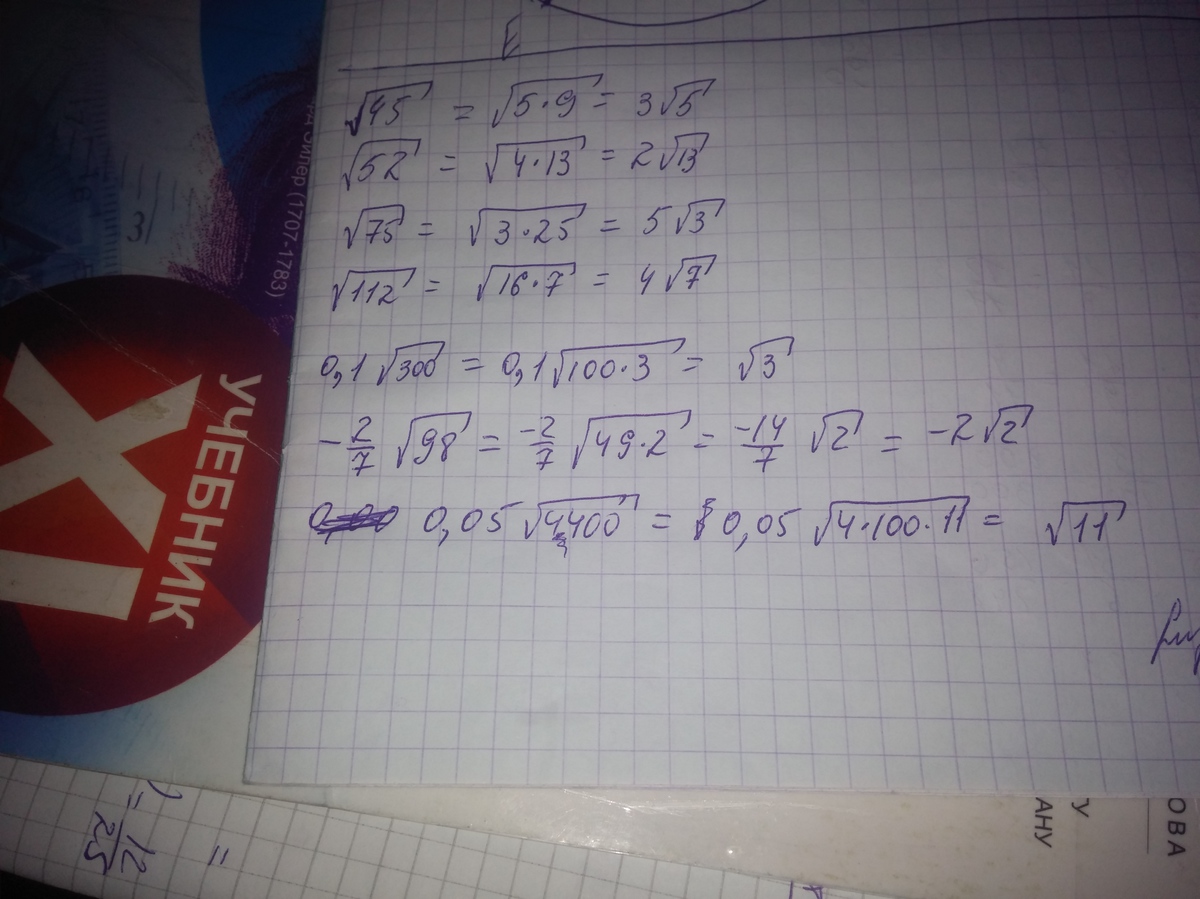 E
√45 = √5·9 = 3√5
√52 = √4·13 = 2√13
√75 = √3·25 = 5√3
√112 = √16·7 = 4√7
0,1√300 = 0,1√100·3 = √3
-2/7 √98 = -2/7 √49·2 = -14/7 √2 = -2√2
0,05√4400 = 0,05√4·100·11 = √11
(1707-1783)
УЧЕБНИК
IX
) = 12/25
=
ОВА
У
АНУ